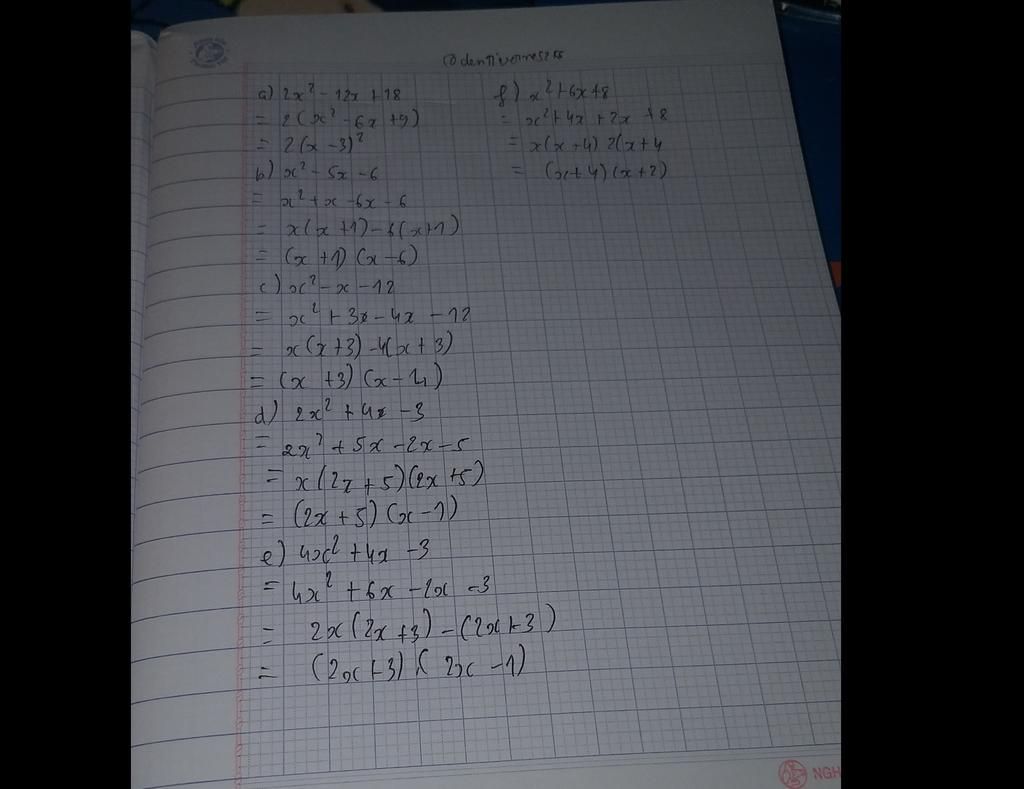 a) 2x² - 12x + 18
= 2(x² - 6x + 9)
= 2(x - 3)²
b) x² - 5x - 6
= x² + x - 6x - 6
= x(x + 1) - 6(x + 1)
= (x + 1) (x - 6)
c) x² - x - 12
= x² + 3x - 4x - 12
= x(x + 3) - 4(x + 3)
= (x + 3) (x - 4)
d) 2x² + 4x - 3
= 2x² + 5x - 2x - 5
= x(2x + 5)(2x + 5)
= (2x + 5) (x - 1)
e) 4x² + 4x - 3
= 4x² + 6x - 2x - 3
= 2x(2x + 3) - (2x + 3)
= (2x + 3) (2x - 1)
f) x² + 6x + 8
= x² + 4x + 2x + 8
= x(x + 4) 2(x + 4
= (x + 4) (x + 2)
NGH